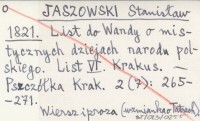 JASZOWSKI Stanisław
1821. List do Wandy o mis-
tycznych dziejach narodu pol-
skiego. List VI. Krakus. —
Pszczółka Krak. 2 (7): 265-
-271.
Wiersz i proza (wzmianka o Tatrach)